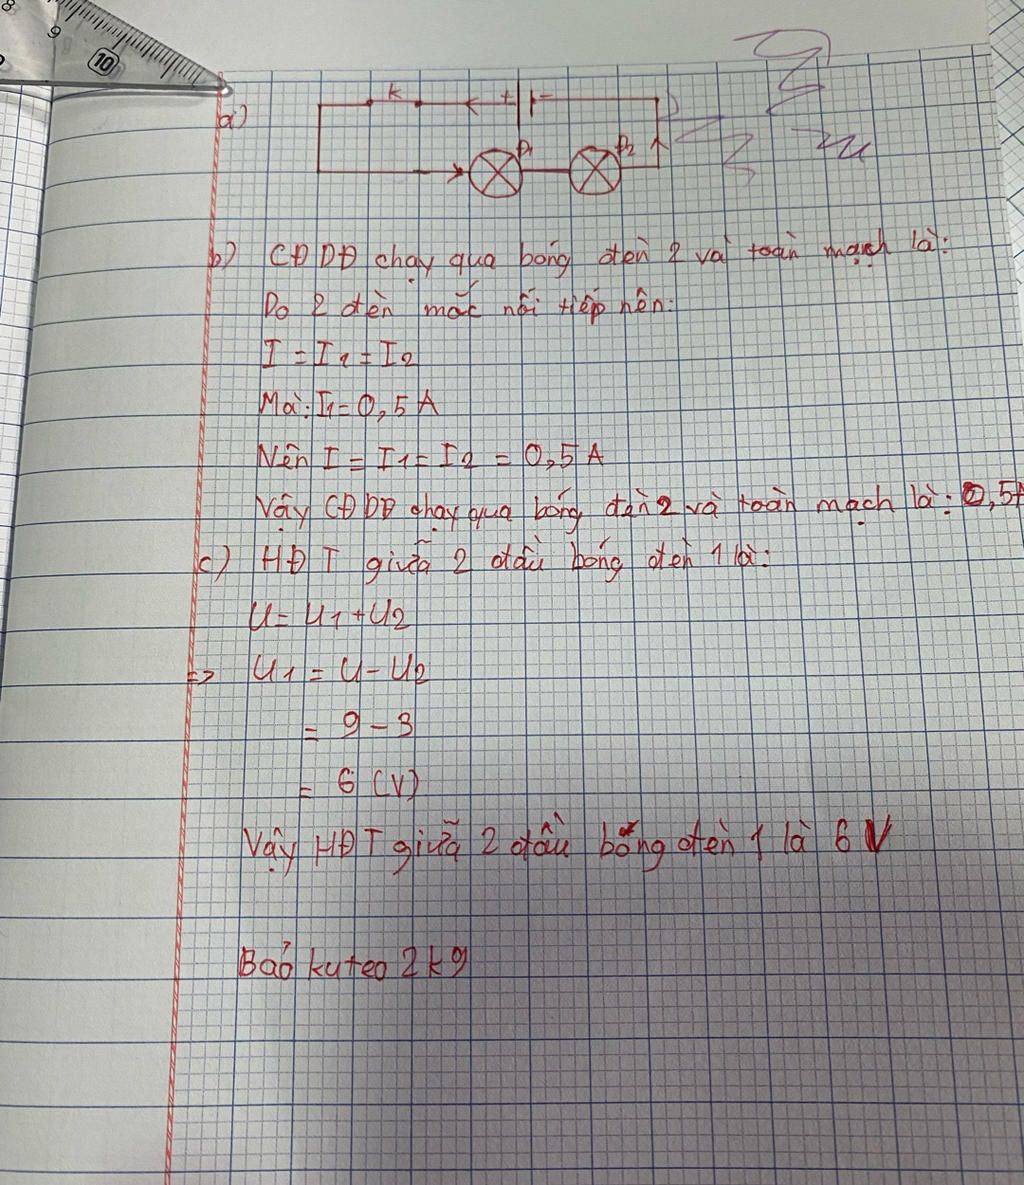 8
9
10
a)
K
+ -
Đ1
Đ2
b) CĐDĐ chạy qua bóng đèn 2 và toàn mạch là:
Do 2 đèn mắc nối tiếp nên:
I = I1 = I2
Mà: I1 = 0,5 A
Nên I = I1 = I2 = 0,5 A
Vậy CĐDĐ chạy qua bóng đèn 2 và toàn mạch là: 0,5A
c) HĐT giữa 2 đầu bóng đèn 1 là:
U = U1 + U2
=> U1 = U - U2
= 9 - 3
= 6 (V)
Vậy HĐT giữa 2 đầu bóng đèn 1 là 6 V
Bảo kuteo 2 kg